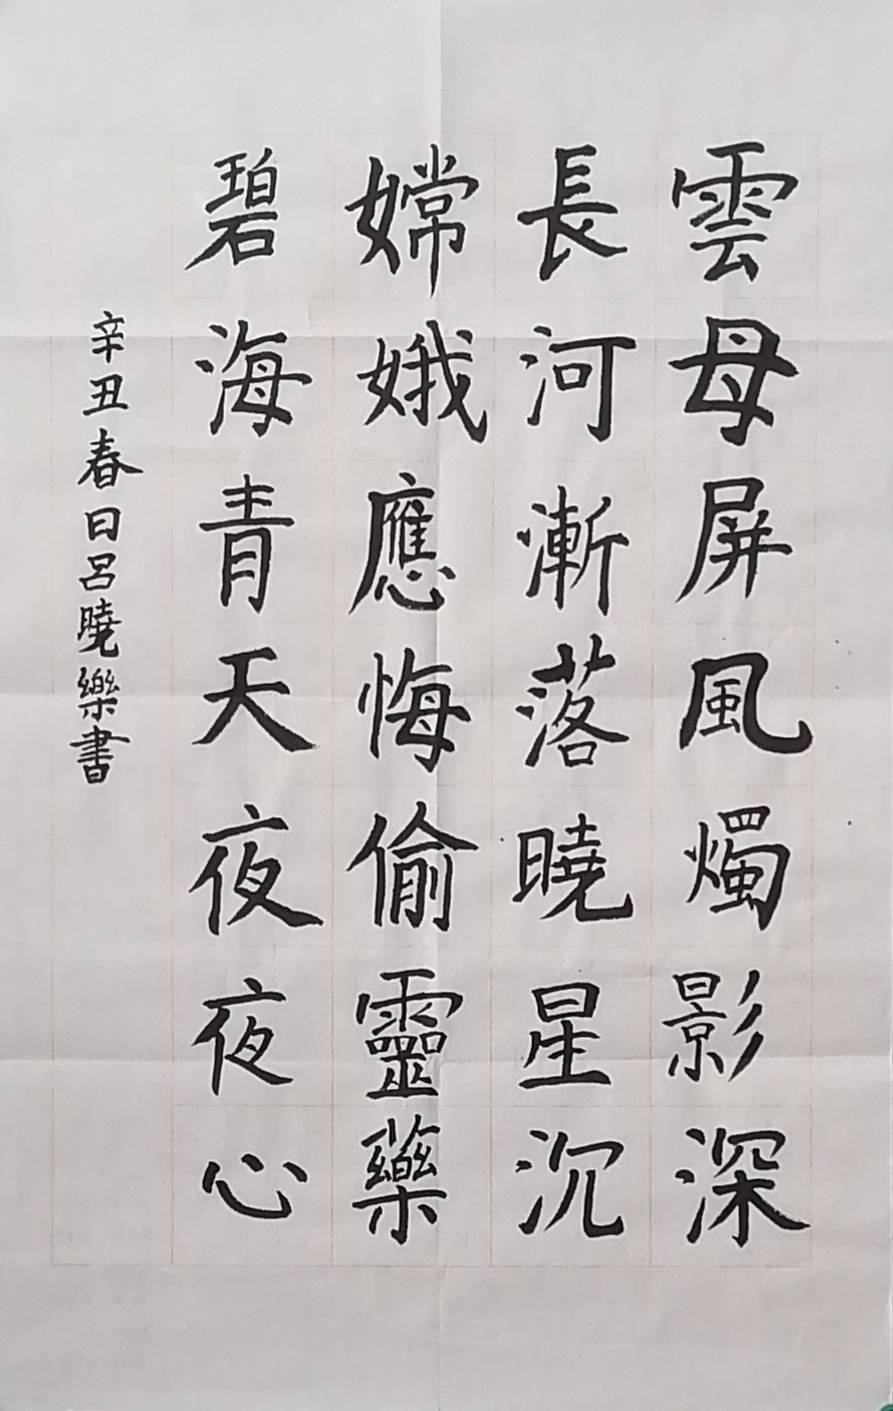 雲母屏風燭影深
長河漸落曉星沉
嫦娥應悔偷靈藥
碧海青天夜夜心
辛丑春日呂曉樂書